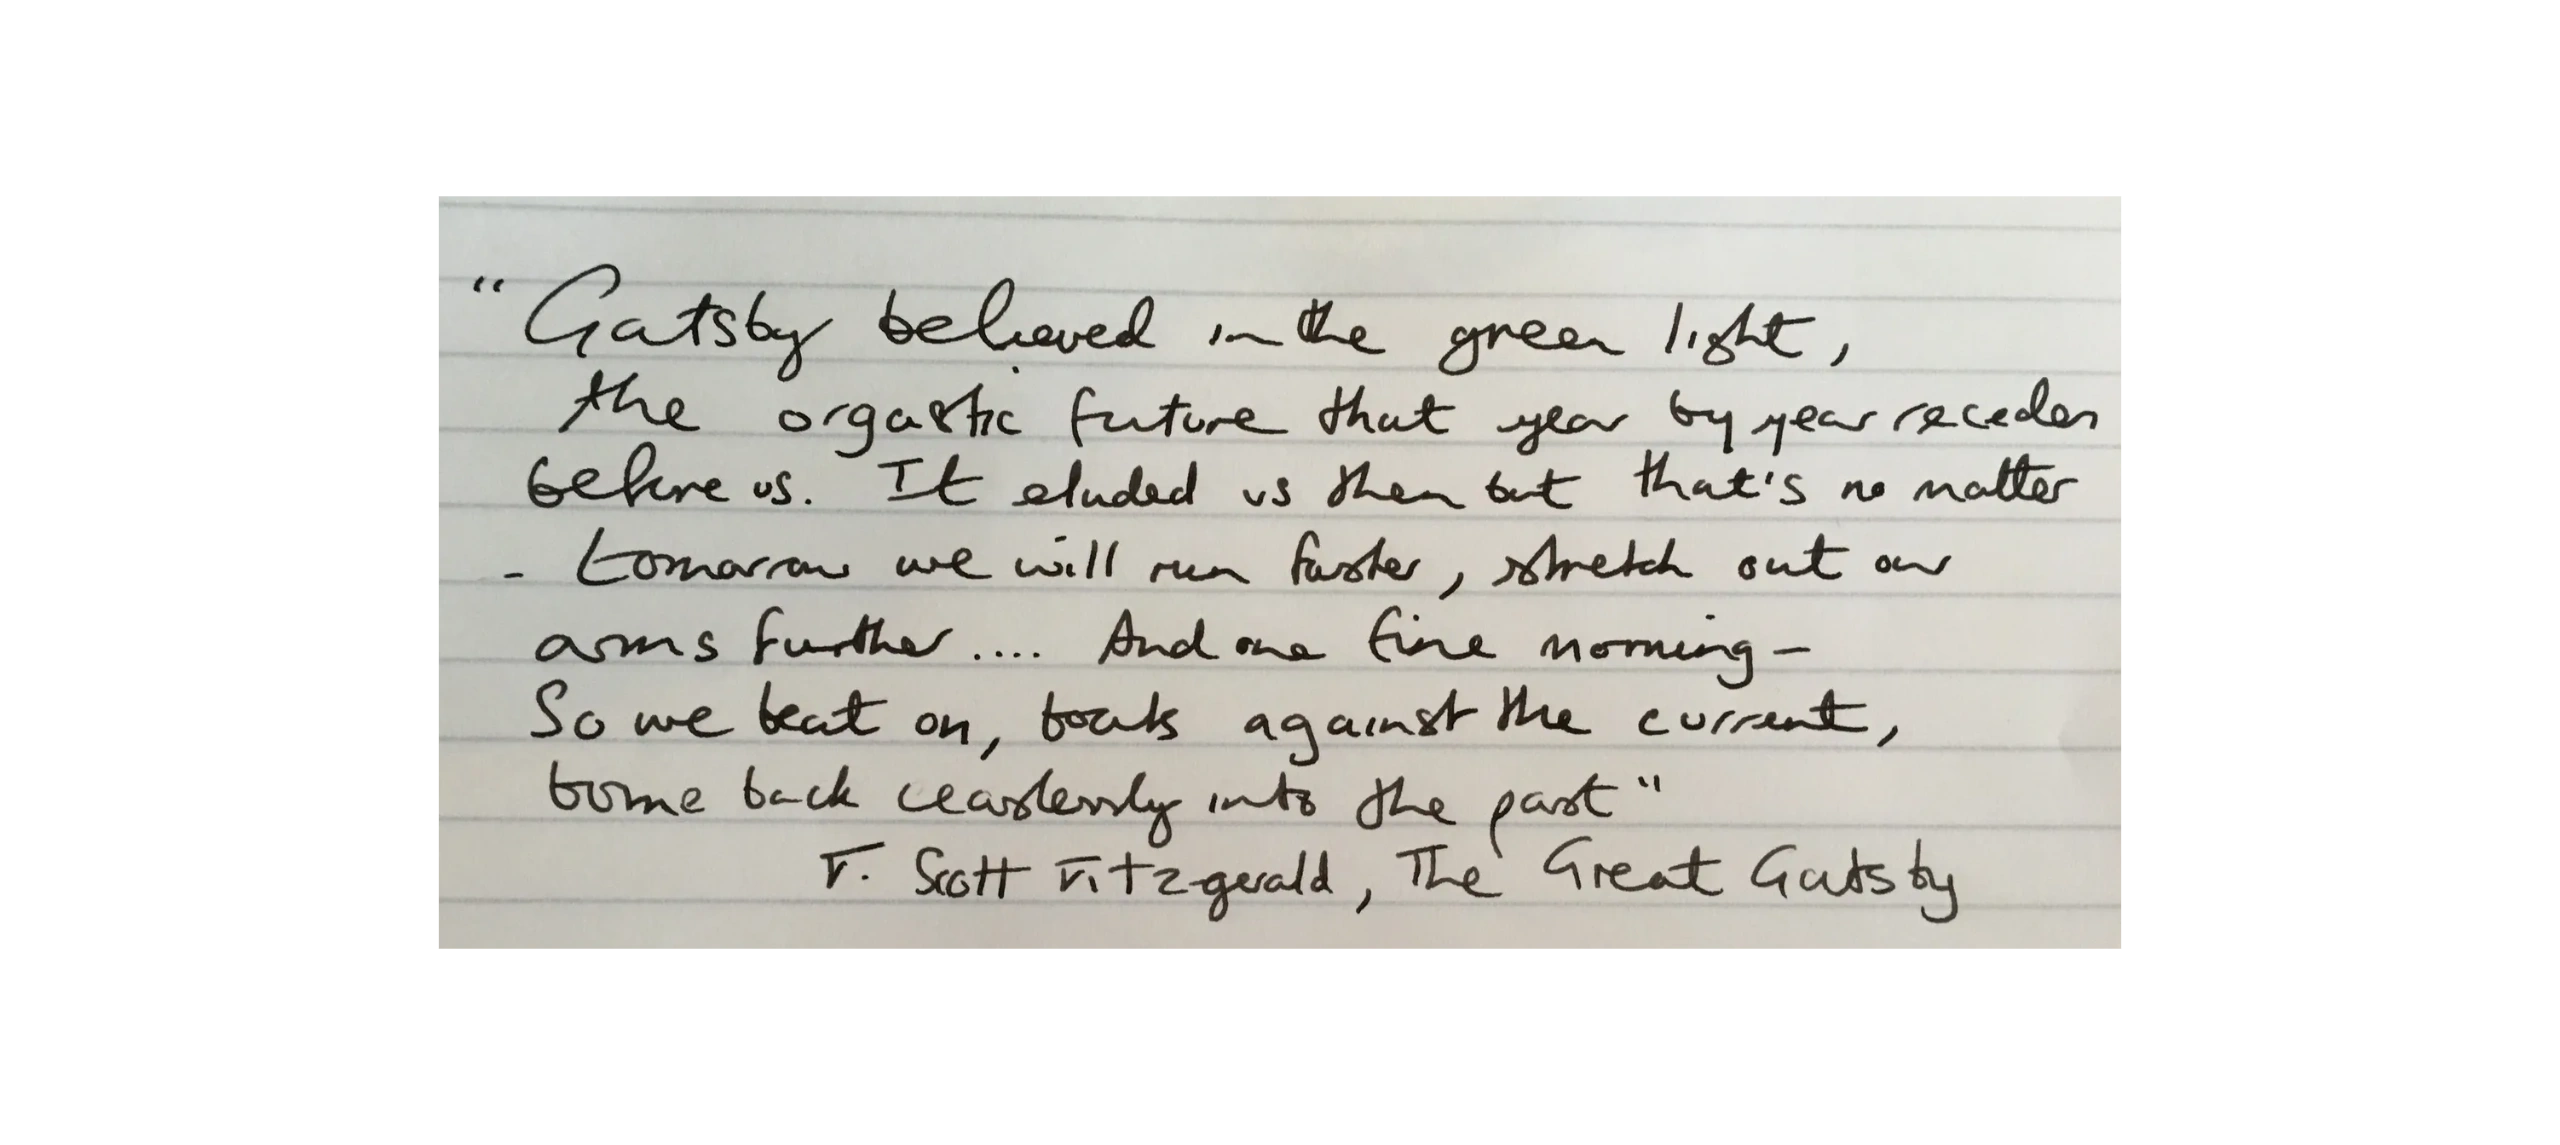 "Gatsby believed in the green light,
the orgastic future that year by year recedes
before us. It eluded us then but that's no matter
- tomorrow we will run faster, stretch out our
arms further.... And one fine morning -
So we beat on, boats against the current,
borne back ceaslessly into the past"
F. Scott Fitzgerald, The Great Gatsby